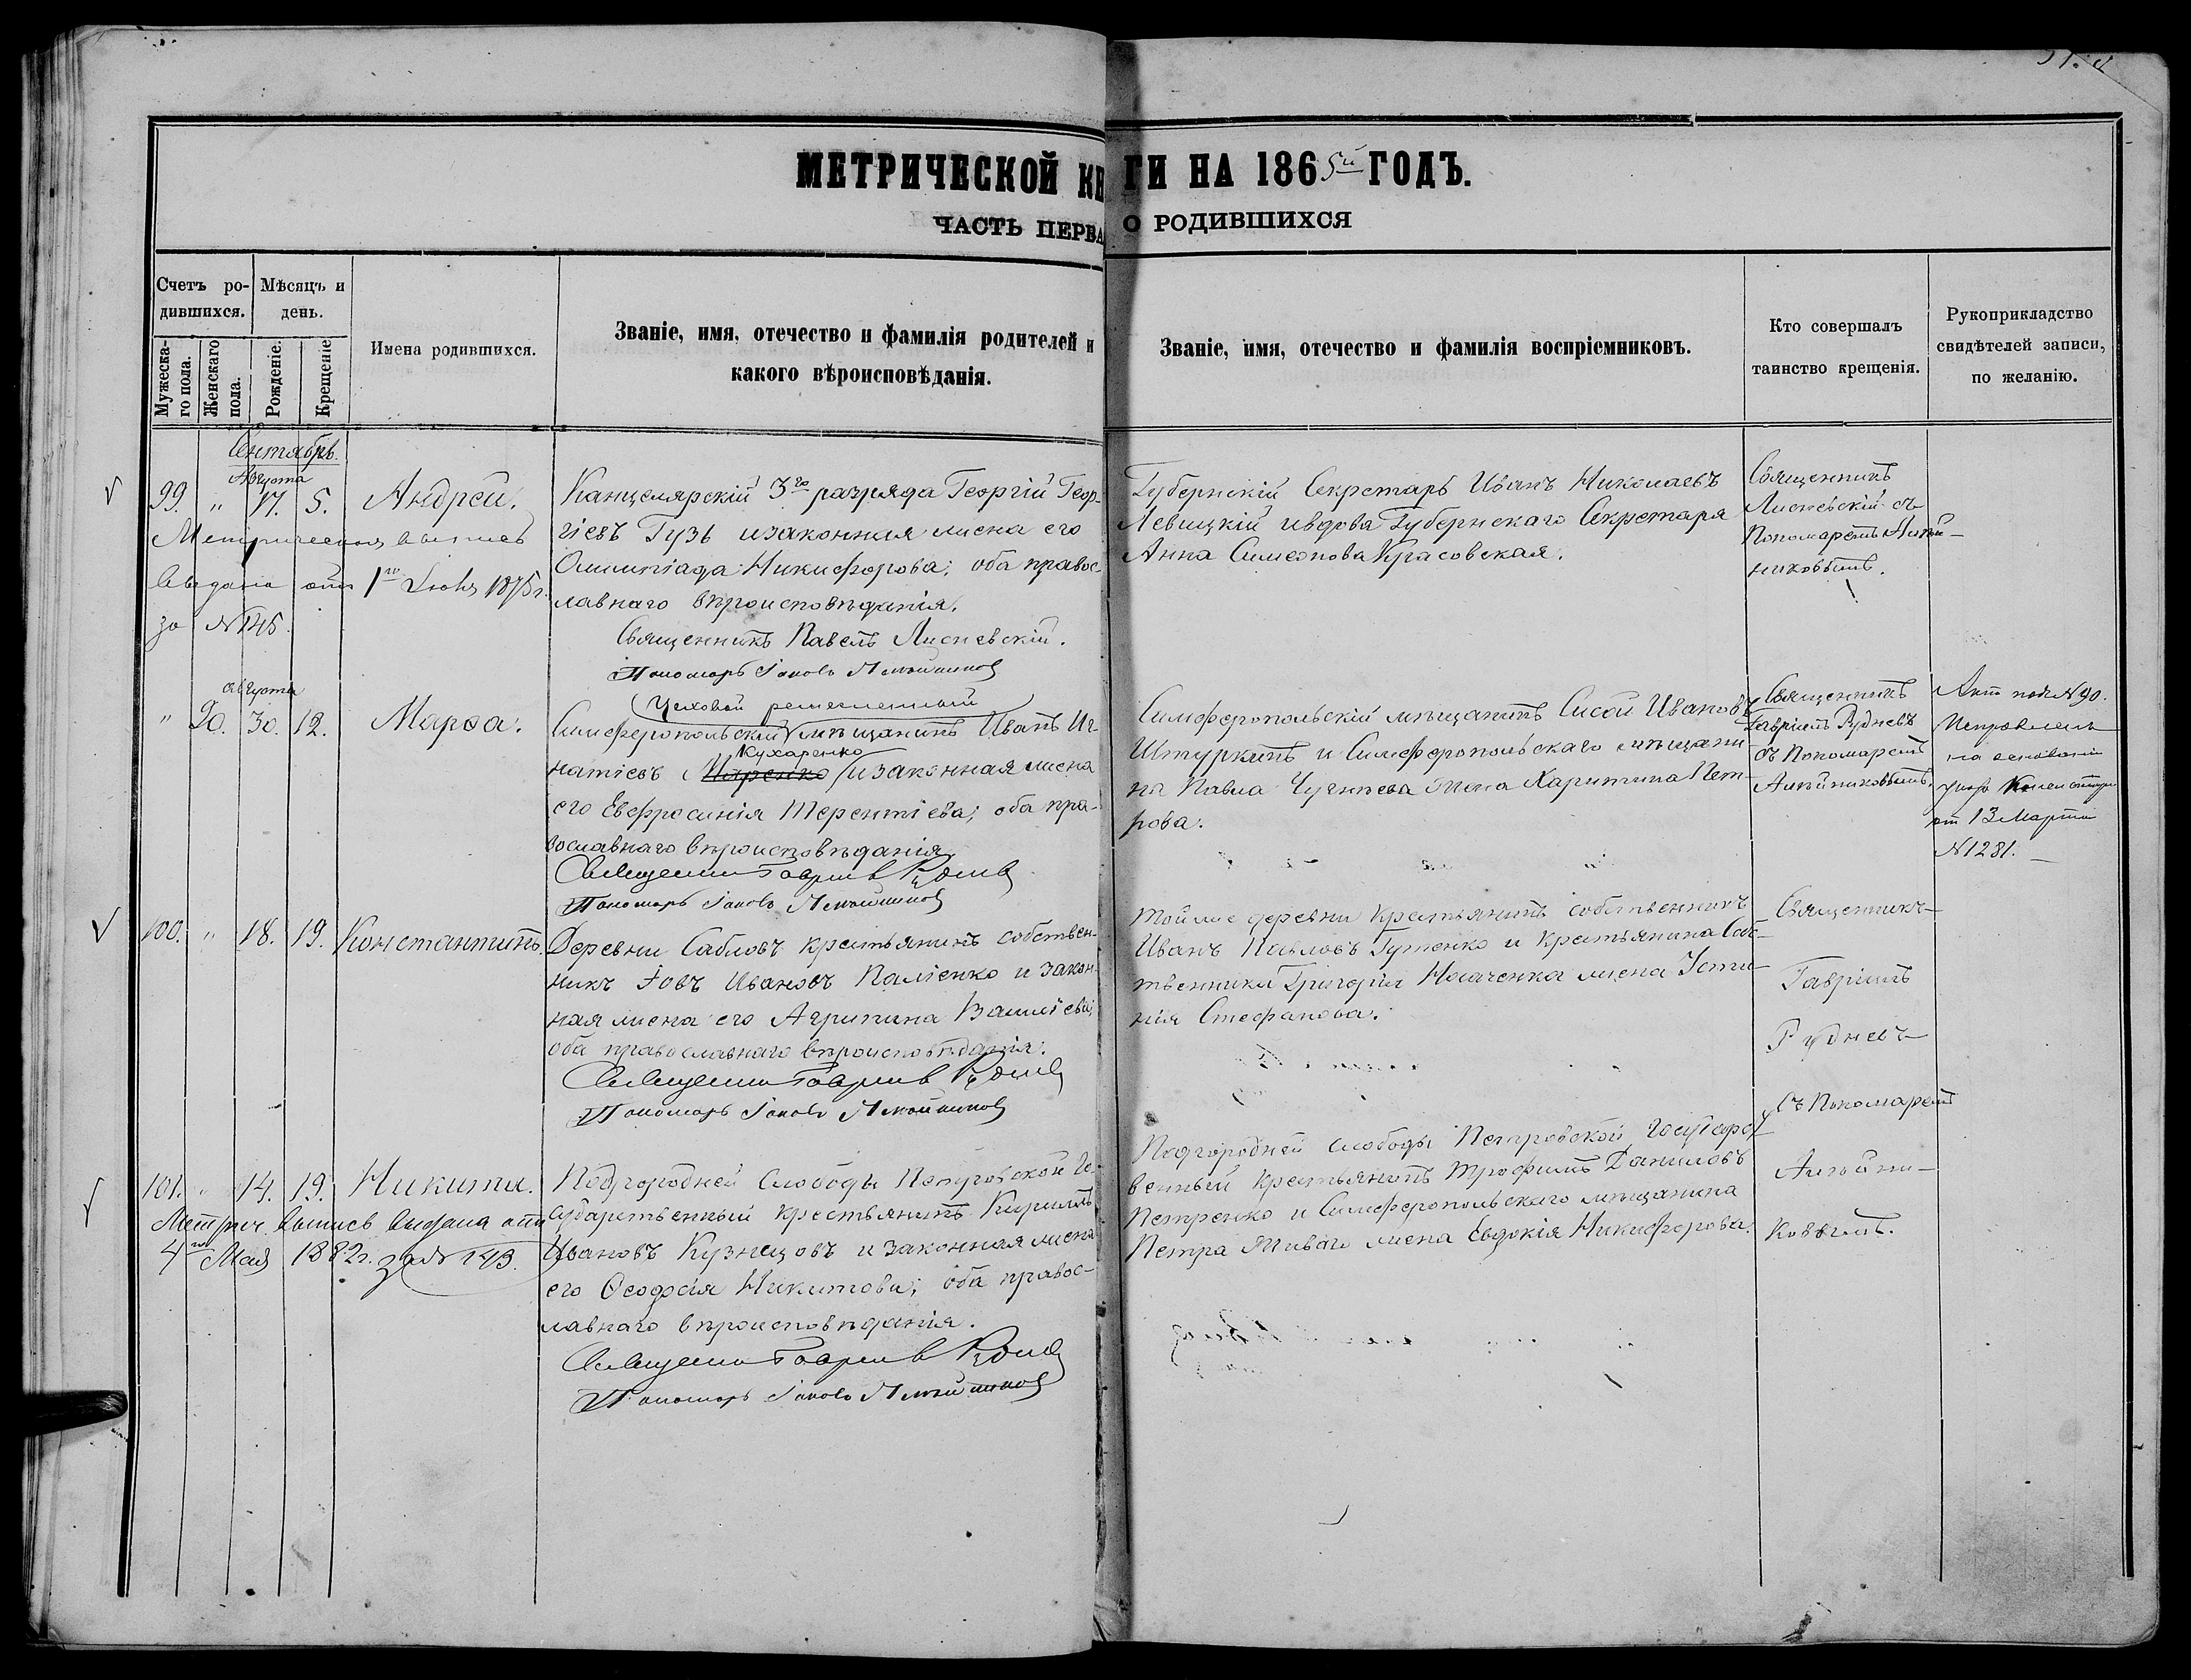 МЕТРИЧЕСКОЙ КН ГИ НА 1865й ГОДЪ.
ЧАСТЬ ПЕРВА О РОДИВШИХСЯ
Счетъ ро-
дившихся.
Мужеска-
го пола.
Женскаго
пола.
Мѣсяцъ и
день.
Рожденіе.
Крещеніе
Имена родившихся.
Званіе, имя, отечество и фамилія родителей и
какого вѣроисповѣданія.
Званіе, имя, отечество и фамилія воспріемниковъ.
Кто совершалъ
таинство крещенія.
Рукоприкладство
свидѣтелей записи,
по желанію.
Сентябрь.
Августа
99. " 17. 5. Андрей.
Метрическая выпись
выдана отъ 1го Іюня 1875 г.
за № 145.
Канцелярскій 3го разряда Георгій Геор-
гіевъ Гузь и законная жена его
Олимпіада Никифорова; оба правос-
лавнаго вѣроисповѣданія.
Священникъ Павелъ Лисневскій.
Пономарь Іаковъ Алейниковъ
Губернскій Секретарь Иванъ Николаевъ
Левицкій и вдова Губернскаго Секретаря
Анна Симеонова Красовская.
Священникъ
Лисневскій съ
Пономаремъ Алей-
никовымъ.
августа
" 90. 30. 12. Марѳа.
Цеховой ремесленный
Симферопольскій мѣщанинъ Иванъ Иг-
Кухаренко
натіевъ и законная жена
его Евфросинія Терентіева; оба пра-
вославнаго вѣроисповѣданія
Священникъ Гавріилъ Рудневъ
Пономарь Іаковъ Алейниковъ
Симферопольскій мѣщанинъ Сисой Ивановъ
Штуркинъ и Симферопольскаго мѣщани-
на Павла жена Харитина Пет-
рова.
Священникъ
Гавріилъ Рудневъ
съ Пономаремъ
Алейниковымъ.
Актъ подъ № 90.
Исправленъ
на основаніи
указа Консисторіи
отъ 13 Марта
№ 1281.
100. " 18. 19. Константинъ.
Деревни Сабловъ крестьянинъ собствен-
никъ Іовъ Ивановъ Паліенко и закон-
ная жена его Агрипина Василіева;
оба православнаго вѣроисповѣданія.
Священникъ Гавріилъ Рудневъ
Пономарь Іаковъ Алейниковъ
Той же деревни крестьянинъ собственникъ
Иванъ Павловъ Гутенко и крестьянина Соб-
ственника Григорія Носаченка жена Усти-
нія Стефанова.
Священникъ
Гавріилъ
Рудневъ
съ Пономаремъ
Алейни-
ковымъ.
101. " 14. 19. Никита.
Метрич. выпись выдана отъ
4го Мая 1882 г. за № 143.
Подгородней Слободы Петровской Го-
сударственный крестьянинъ Кириллъ
Ивановъ Кузнецовъ и законная жена
его Ѳеофсія Никитова; оба правос-
лавнаго вѣроисповѣданія.
Священникъ Гавріилъ Рудневъ
Пономарь Іаковъ Алейниковъ
Подгородней слободы Петровской государст-
венный крестьянинъ Трофимъ Даниловъ
Петренко и Симферопольскаго мѣщанина
Петра Живаго жена Евдокія Никифорова.